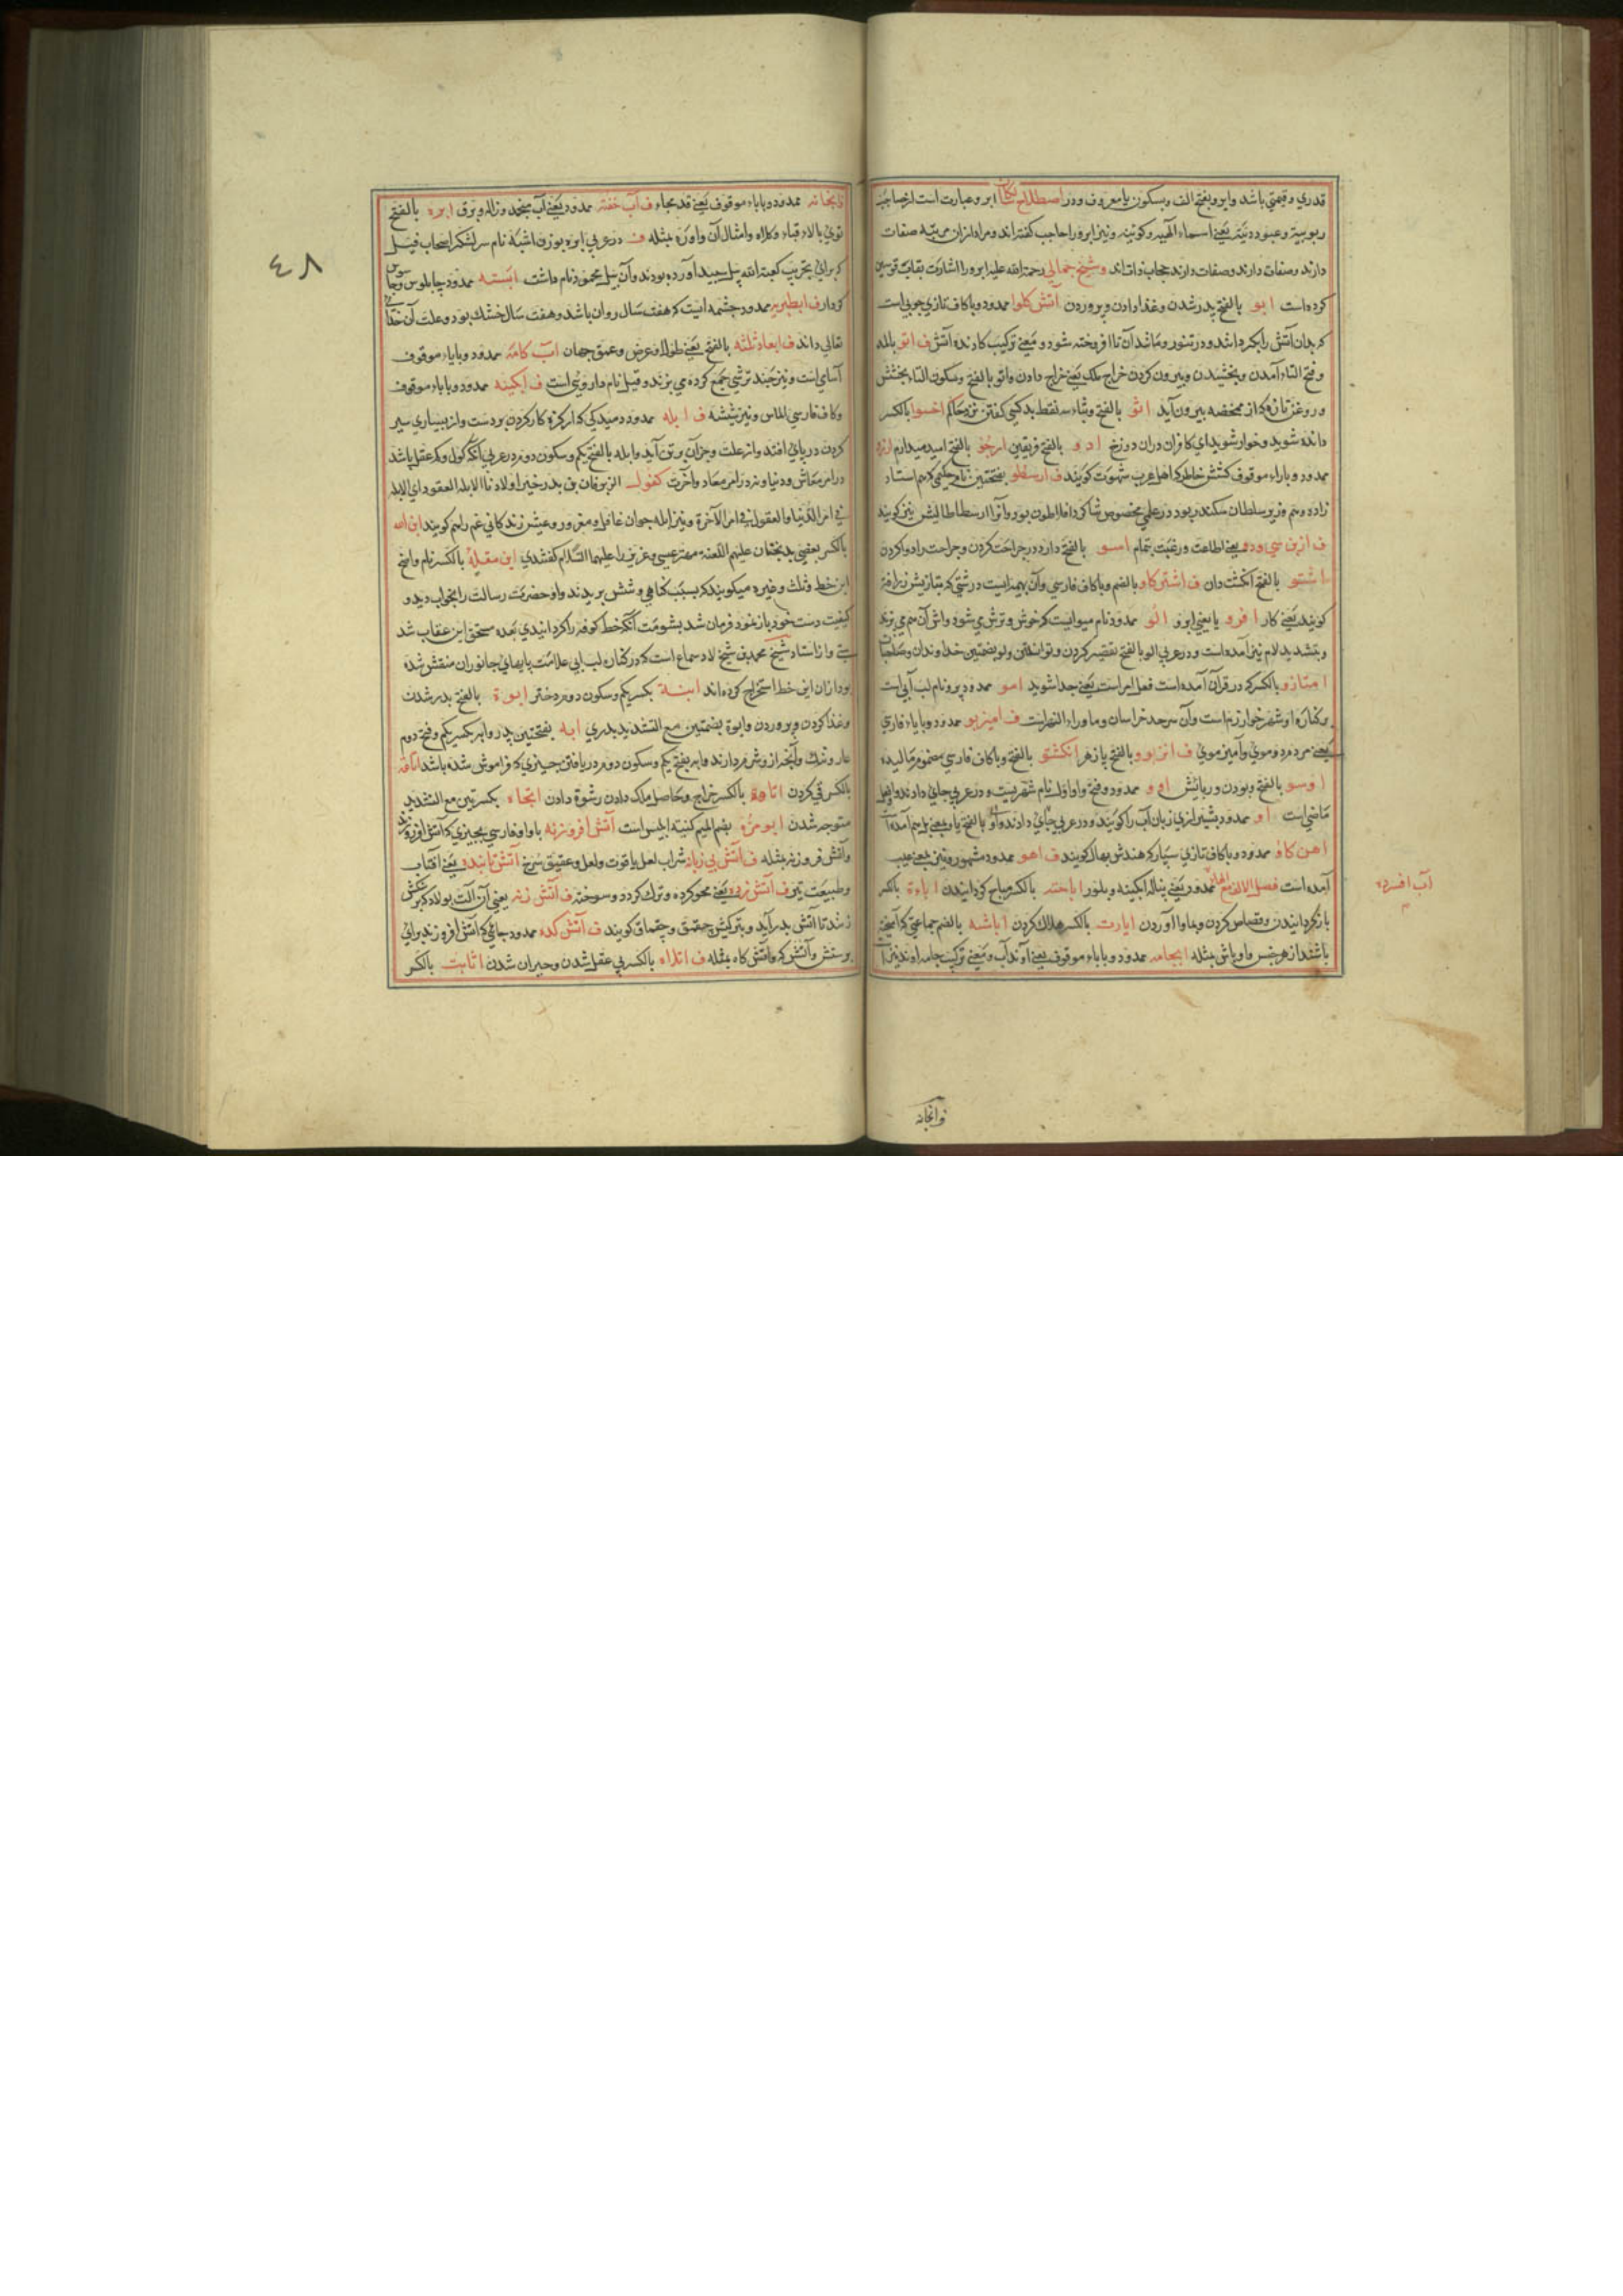 قدری و قیمتی باشد وابرو بفتح الف وبسکون یا معروف ودر اصطلاح ابرو عبارت است از حاجب
ربوبیة وعبودیة یعنی اسماء الهیه وکونیه ونیز ابرو را حاجب گفته اند ومراد ازان مرتبه صفات
دارند وصفات دارند وصفات دارند حجاب ذات اند وشیخ جمالی رحمة الله علیه ابرو را اشارت بقاب قوسین
کرده است ابو بالفتح پدر شدن وغذا دادن وپروردن آتش کلوا ممدود وبا کاف تازی چوبی است
که بدان آتش را بگرداند ودر تنور ومانند آن تا افروخته شود ومعنی ترکیب کارنده آتش ف اتو بالمد
وفتح التاء آمدن وبخشیدن وبیرون کردن خراج ملک یعنی خراج دادن واتو بالفتح وسکون التاء بخشش
وروغن تازه که از مخضه بیرون آید اثو بالفتح وثاء سه نقط بد کسی گفتن نزد حاکم اخسوا بالکسر
دانده شوید وخوار شوید ای کافران دران دوزخ ادو بالفتح فریفتن ارجو بالفتح امید میدارم ارزو
ممدود وبا راء موقوف کشش خاطر که اهل عرب شهوت گویند ف ارسطو بفتحتین نام حکیمی که هم استاد
زاده وهم وزیر سلطان سکندر بود ودر علمی مخصوص شاگرد افلاطون بود واو را ارسطاطالیس نیز گویند
ف یعنی اطاعت ورغبت تمام اسو بالفتح دارو در جراحت کردن وجراحت را دوا کردن
اشتو بالفتح انگشت دان ف اشتر کاو بالضم وبا کاف فارسی وآن بهیمه ایست درشتی که بتازیش زرافه
گویند یعنی کار افرو یا یعنی ابرو الو ممدود نام میوه ایست که خوش وترش می شود واش آن هم می پزند
وبتشدید لام نیز آمده است ودر عربی الو بالفتح تقصیر کردن وتوانستن ولو بضمتین خداوندان وصاحبان
امتازو بالکسر که در قرآن آمده است فعل امر است یعنی جدا شوید امو ممدود پرو نام لب آبی است
وکناره او شهر خوارزم است وآن سرحد خراسان وما وراء النهر است ف امیزمو ممدود وبا یاء فارسی
یعنی مردم دو موی وآمیز موی ف بالفتح پا زهر انکشتو بالفتح وبا کاف فارسی مضموم مالیده
اوسو بالفتح وبودن وربایش اوو ممدود وفتح واو اول نام شهریست ودر عربی جای دادند
ماضی است او ممدود بشیرازی زبان آب را گویند ودر عربی جای دادند
اهن کاو ممدود وبا کاف تازی سپار که هندش بهال گویند ف اهو ممدود مشهور ونیز بمعنی عیب
آمده است فصل الالف مع الهاء ممدود یعنی پیاله ابگینه وبلور اباحته بالکسر مباح گردانیدن اباءة بالکسر
باز گردانیدن وقصاص کردن اباارت بالکسر هلاک کردن اباشه بالضم جماعتی که آمیخته
باشند از هر جنس واوباش مثله ابجامه ممدود وبا باء موقوف یعنی آوند آب ومعنی ترکیب جامه اوند نیز
آب افسرده
وابخانه
وابخانه ممدود وباباء موقوف یعنی قدمجاء ف آب خفته ممدود یعنی آب منجمد وژاله وبرف ابره بالفتح
توی بالاء قباء وکلاه وامثال آن واوره مثله ف ودر عربی ابره بوزن اشبه نام سر لشکر اصحاب فیل
که برای تخریب کعبة الله پیل سپید آورده بودند وآن پیل محمود نام داشت ابسته ممدود چاپلوس
کردار ف ابطبریه ممدود چشمه ایست که هفت سال روان باشد وهفت سال خشک بود وعلت آن خدای
تعالی داند ف ابعاد ثلثه بالفتح یعنی طول وعرض وعمق جهان آب کامه ممدود وبا باء موقوف
آسای است ونیز چند ترشی جمع کرده می پزند وقیل نام داروئی است ف ابگینه ممدود وبا باء موقوف
وکاف فارسی الماس ونیز شیشه ف ابله ممدود دمیدگی که از کثرة کار کردن بر دست واز بسیاری سیر
کردن در پای افتد واز علت وجز آن بر تن آید وابله بالفتح یکم وسکون دوم در عربی آنکه گول وکم عقل باشد
در امر معاش ودنیا ونه در امر معاد وآخرت کقول الزبرقان بن بدر خیر اولادنا الابله العقول ای الابله
فی امر الدنیا والعقول فی امر الآخرة ونیز ابله جوان غافل ومغرور وعیش زندگانی غم راهم گویند ابن الله
بالکسر بعضی بدبختان علیهم اللعنة مهتر عیسی وعزیر را علیهما السلام گفتندی ابن مقله بالکسر نام واضع
این خط وثلث وغیره میگویند که بسبب گناهی دستش بریدند واو حضرت رسالت را بخواب دید و
کیفیت دست خود باز نمود فرمان شد بشومت آنکه خط کوفه را گردانیدی بعده مستحق این عقاب شد
واز استاد شیخ محمد بن شیخ لاد سماع است که در کناره لب ابی علامت پایهای جانوران منقش شده
بود ازان این خط استخراج کرده اند ابنة بکسر یکم وسکون دوم دختر ابوة بالفتح پدر شدن
وغذا کردن وپروردن وابوة بضمتین مع التشدید پدری ابه بفتحتین پدر وابه بکسر یکم وفتح دوم
عار وننگ وآنچه ازو شرم دارند وابه بفتح یکم وسکون دوم دریافتن چیزی که فراموش شده باشد
بالکسر قی کردن اتاوة بالکسر خراج وحاصل ملک دادن رشوة دادن اتجاء بکسرتین مع التشدید
متوجه شدن ابو مرّه بضم المیم کنیه ابلیس است آتش افروزنه باواو فارسی چیزی که آتش افروزند
وآتش فروزنه مثله ف آتش بی زیاد شراب لعل یاقوت ولعل وعقیق سرخ آتش تابنده یعنی آفتاب
وطبیعت تیز ف آتش زده یعنی محو کرده وترک کرده وسوخته ف آتش زنه یعنی آن آلت پولاد که بر سنگش
زنند تا آتش بدر آید وبترکیش چقمق وچقماق گویند ف آتش کده ممدود جائی که آتش افروزند برای
پرستش وآتش که وآتش گاه مثله ف اتلاه بالکسر بی عقل شدن وحیران شدن اثابت بالکسر
٤٨